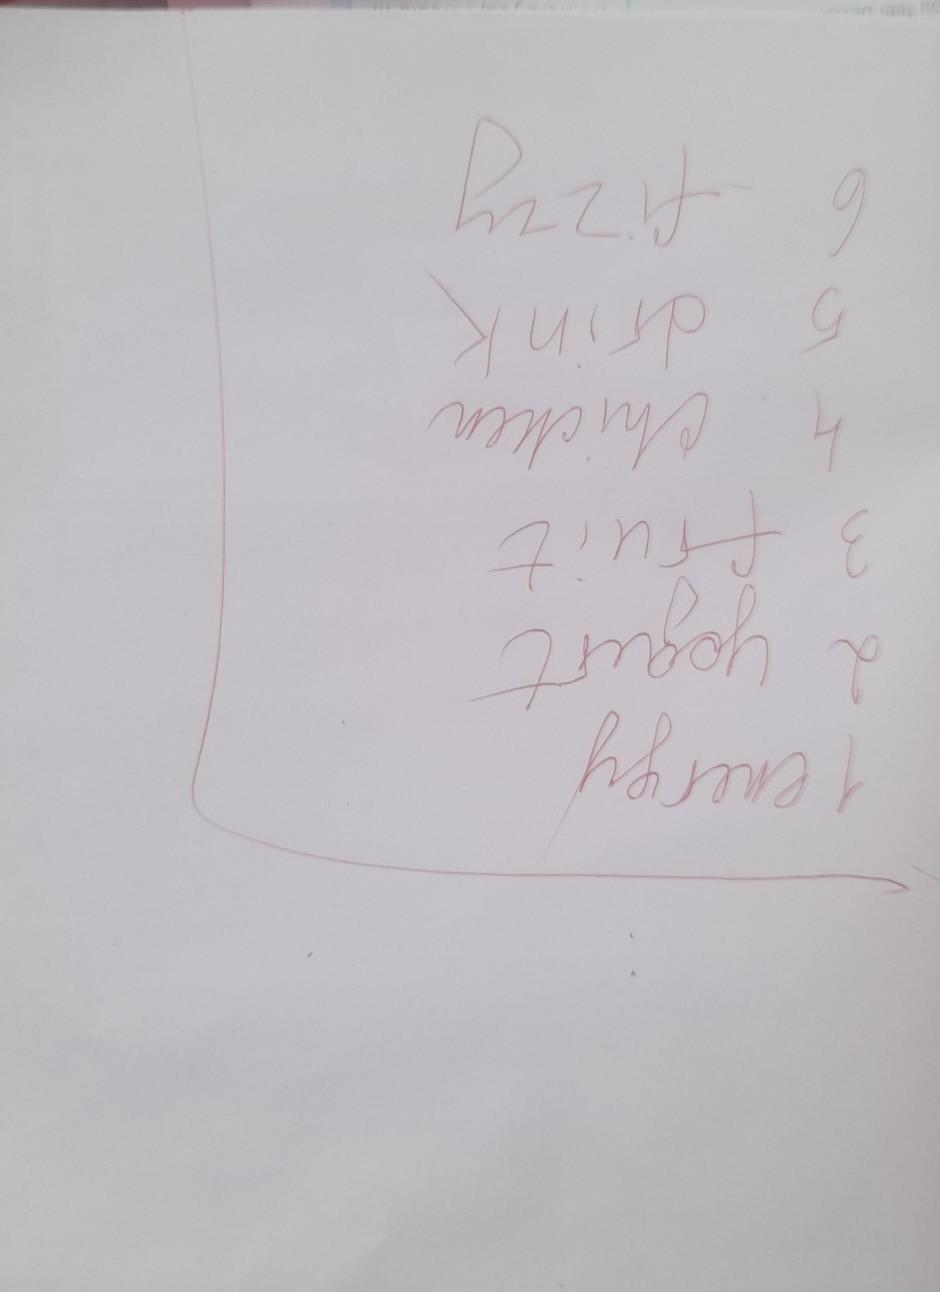 1 energy
2 yogurt
3 fruit
4 chicken
5 drink
6 fizzy